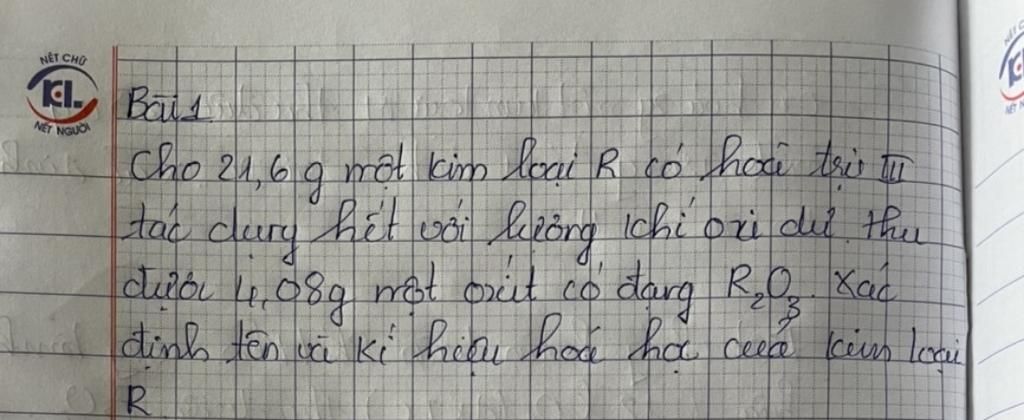 NÉT CHỮ
KL
NÉT NGƯỜI
Bài 1
Cho 21,6 g một kim loại R có hoá trị III
tác dụng hết với lượng khí oxi dư. thu
được 4,08g một oxit có dạng R₂O₃. Xác
định tên và kí hiệu hoá học của kim loại
R